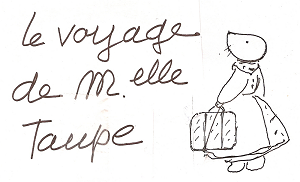 le voyage
de M.elle
Taupe